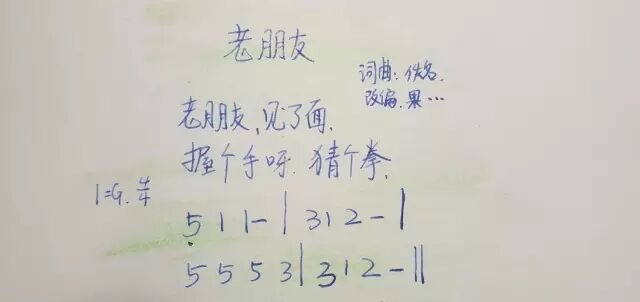 老朋友
词曲:佚名.
改编.果…
老朋友,见了面.
握个手呀.猜个拳.
1=G.4/4
5 1 1 - | 3 1 2 - |
5 5 5 3 | 3 1 2 - ||